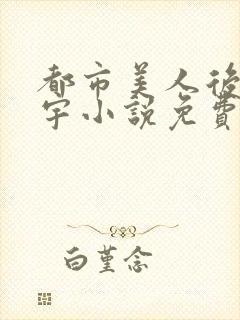 都市美人後
宇小説免費
白堇念